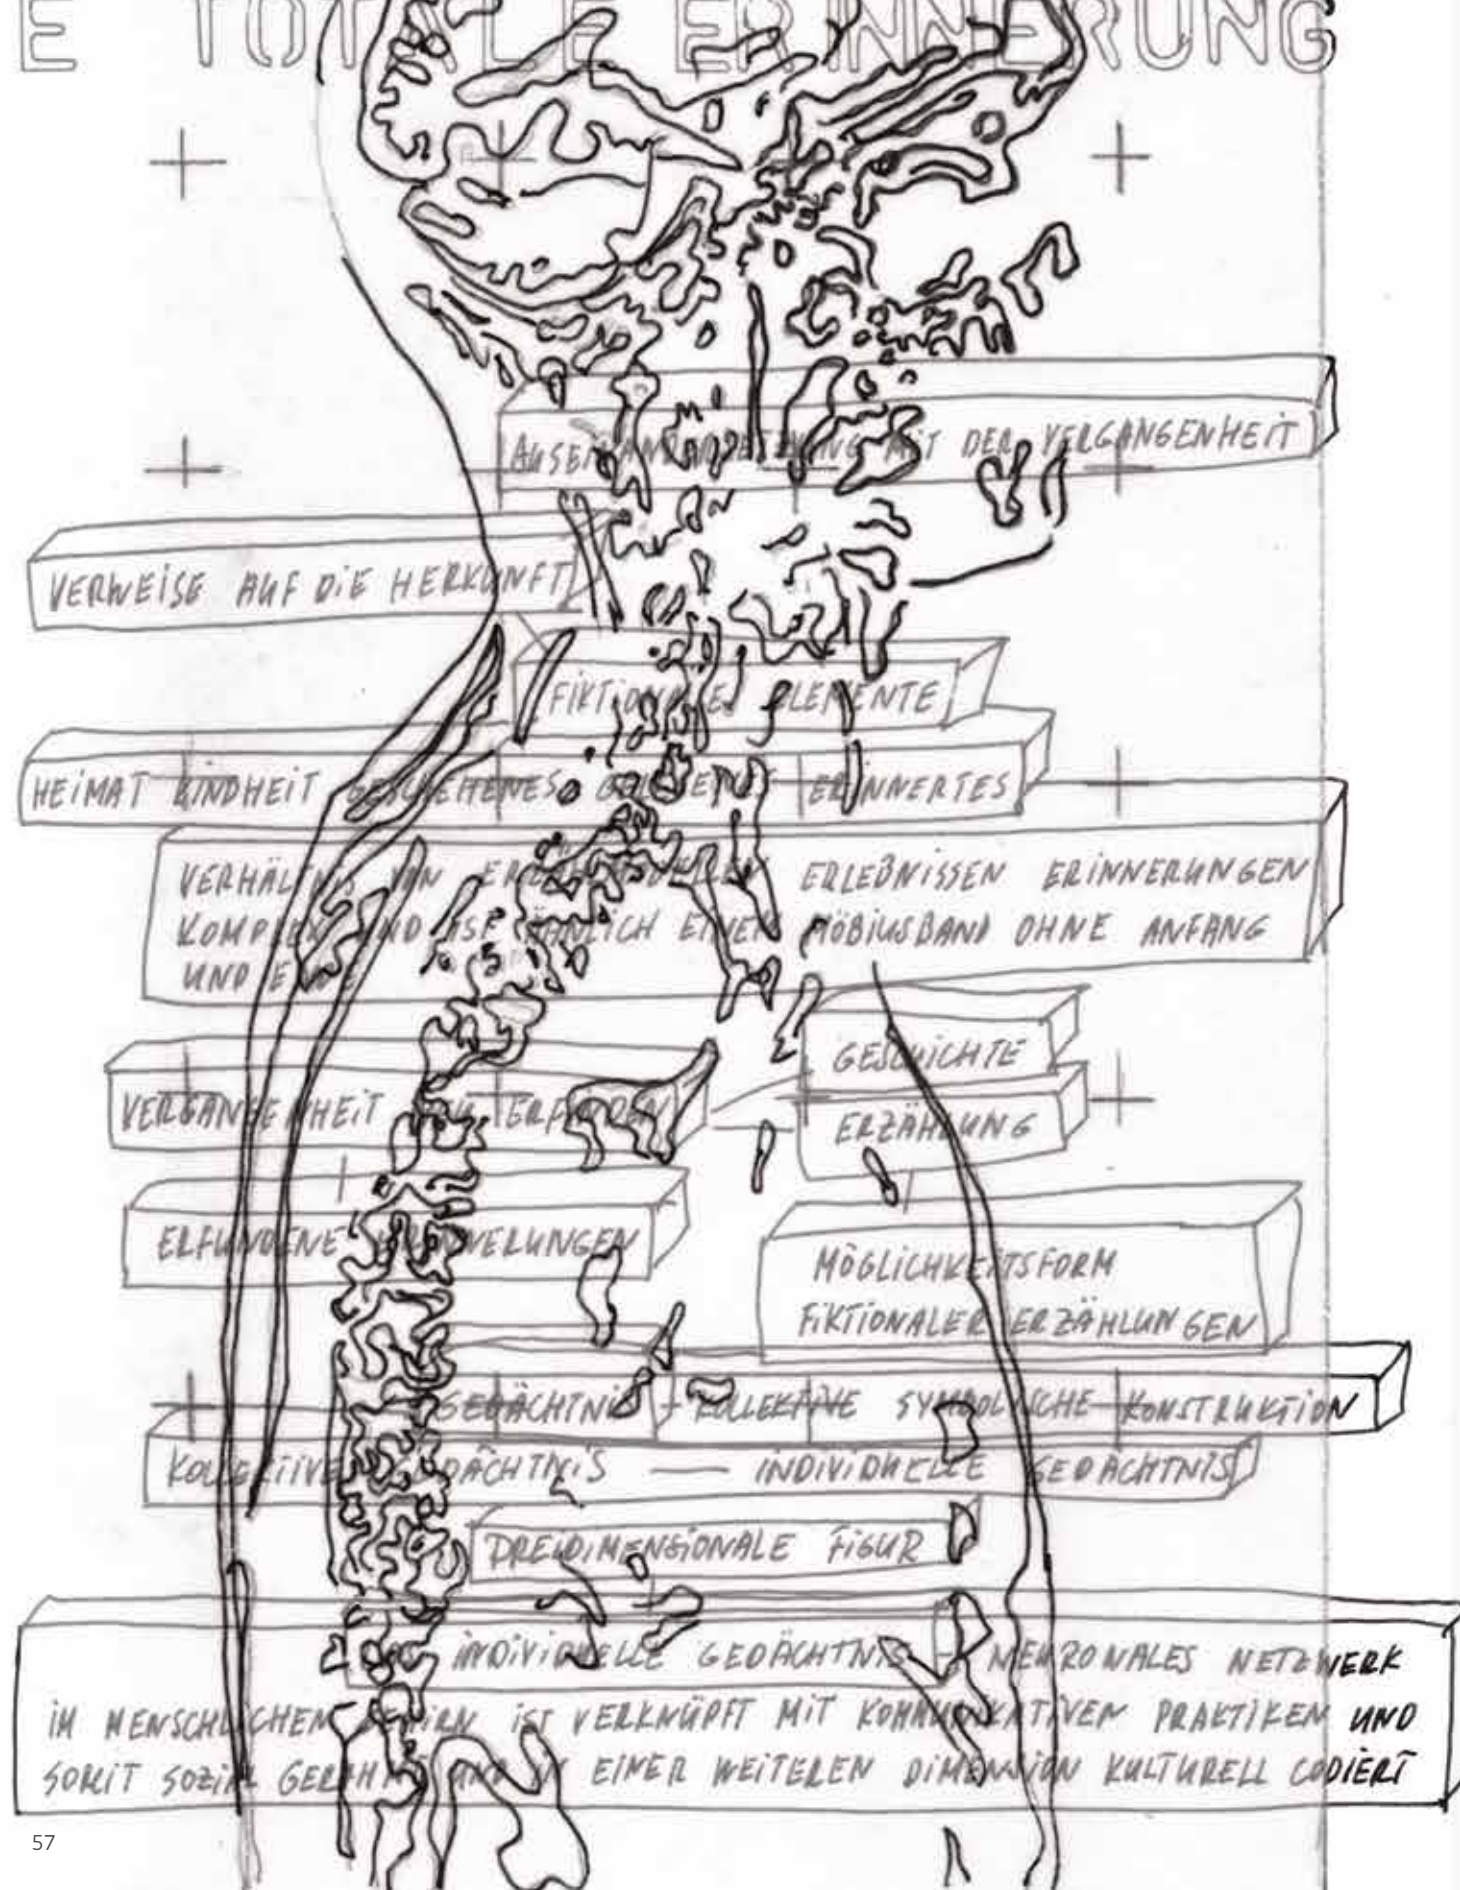 E TOTALE ERINNERUNG
AUSEINANDERSETZUNG MIT DER VERGANGENHEIT
VERWEISE AUF DIE HERKUNFT
FIKTIONALE ELEMENTE
HEIMAT KINDHEIT GESCHEHENES ERINNERTES
VERHÄLTNIS VON ERLEBNISSEN ERINNERUNGEN
KOMPLEX UND IST ÄHNLICH EINEM MÖBIUSBAND OHNE ANFANG
UND ENDE
GESCHICHTE
VERGANGENHEIT ERFINDEN
ERZÄHLUNG
ERFUNDENE ERINNERUNGEN
MÖGLICHKEITSFORM
FIKTIONALER ERZÄHLUNGEN
GEDÄCHTNIS – KOLLEKTIVE SYMBOLISCHE KONSTRUKTION
KOLLEKTIVE GEDÄCHTNIS — INDIVIDUELLE GEDÄCHTNIS
DREIDIMENSIONALE FIGUR
DAS INDIVIDUELLE GEDÄCHTNIS – NEURONALES NETZWERK
IM MENSCHLICHEN GEHIRN IST VERKNÜPFT MIT KOMMUNIKATIVEN PRAKTIKEN UND
SOMIT SOZIAL GERAHMT UND IN EINER WEITEREN DIMENSION KULTURELL CODIERT
57